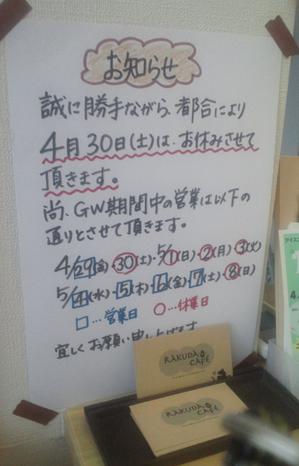 お知らせ
誠に勝手ながら、都合により
4月30日(土)は、お休みさせて
頂きます。
尚、GW期間中の営業は以下の
通りとさせて頂きます。
4/29(金)・30(土)・5/1(日)・2(月)・3(火)
5/4(水)・5(木)・6(金)・7(土)・8(日)
□…営業日 ○…休業日
宜しくお願い申し上げます
RAKUDA
CAFE
RAKUDA
CAFE